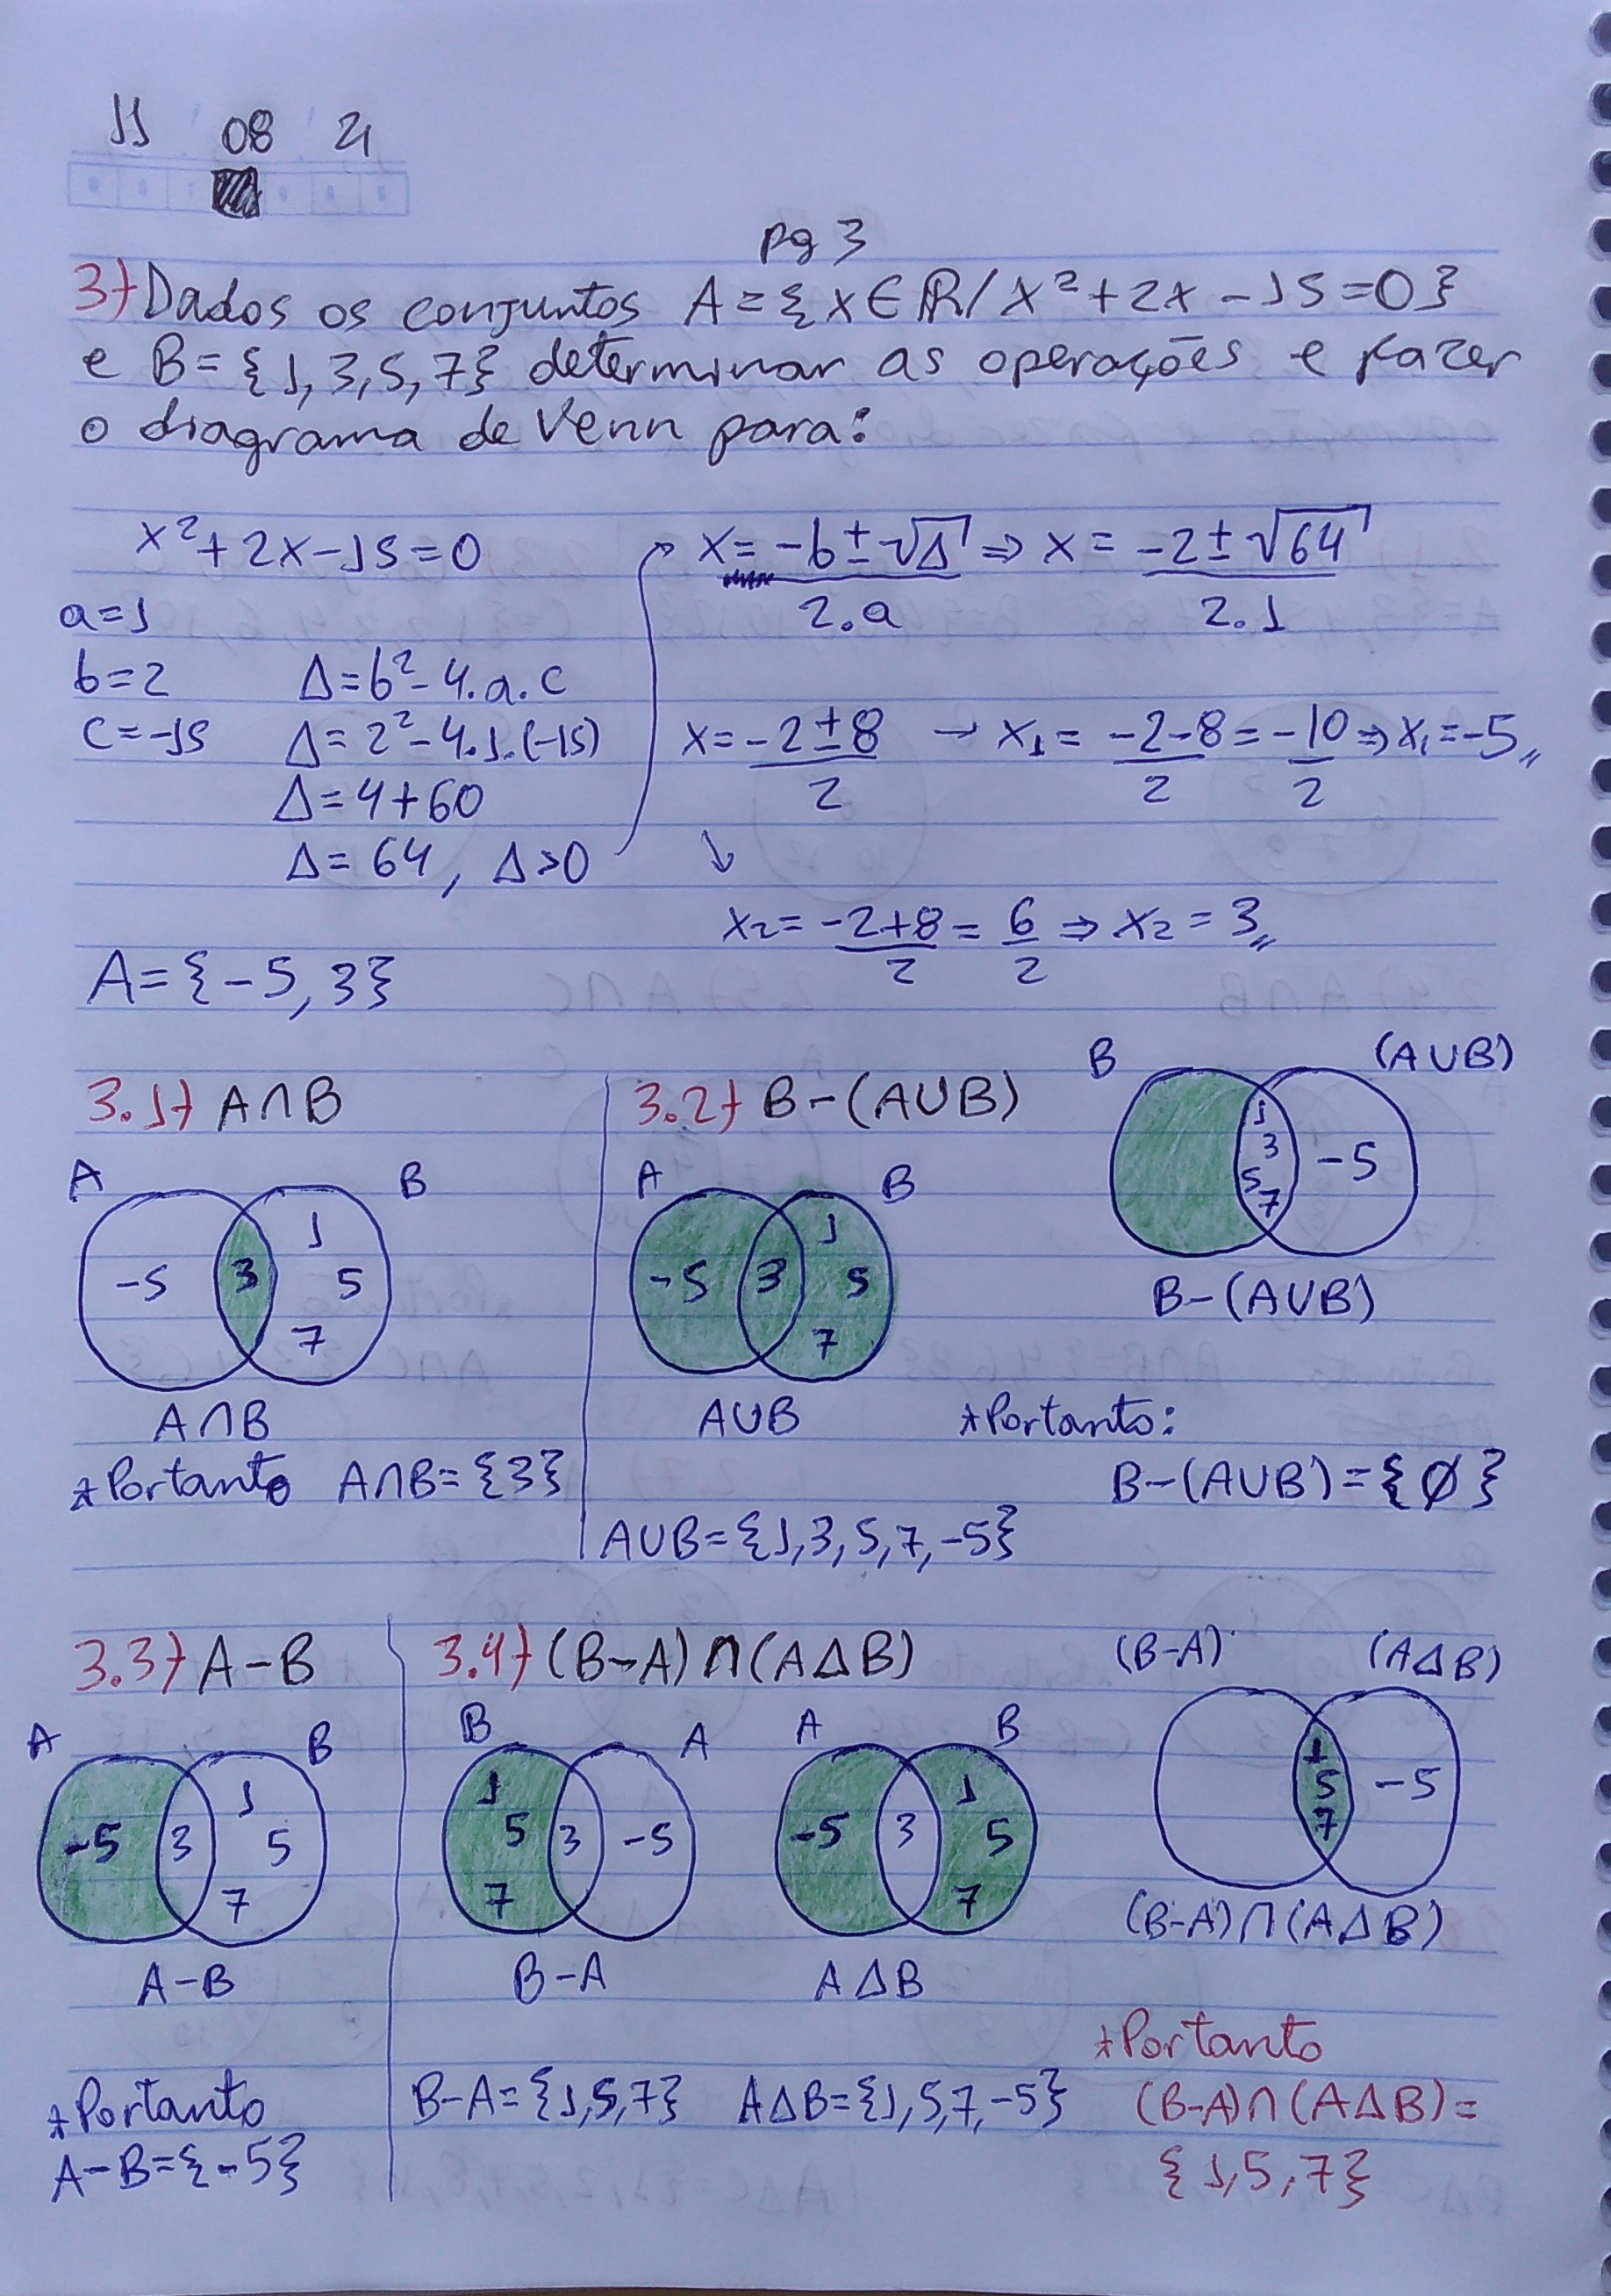 11 08 21
pg 3
3) Dados os conjuntos A = {x ∈ ℝ / x² + 2x - 15 = 0}
e B = {1, 3, 5, 7} determinar as operações e fazer
o diagrama de Venn para:
x² + 2x - 15 = 0
a = 1
b = 2
c = -15
Δ = b² - 4.a.c
Δ = 2² - 4.1.(-15)
Δ = 4 + 60
Δ = 64, Δ > 0
x = -b ± √Δ / 2.a ⇒ x = -2 ± √64 / 2.1
x = -2 ± 8 / 2 → x₁ = -2 - 8 / 2 = -10 / 2 ⇒ x₁ = -5
↓
x₂ = -2 + 8 / 2 = 6 / 2 ⇒ x₂ = 3
A = {-5, 3}
3.1) A∩B
A B
-5 3 1 5 7
A∩B
*Portanto A∩B = {3}
3.2) B-(A∪B)
A B
-5 3 1 5 7
A∪B
A∪B = {1, 3, 5, 7, -5}
B (A∪B)
1 3 5 7 -5
B-(A∪B)
*Portanto:
B-(A∪B) = {∅}
3.3) A-B
A B
-5 3 1 5 7
A-B
*Portanto
A-B = {-5}
3.4) (B-A)∩(AΔB)
B A
1 5 7 3 -5
B-A
B-A = {1, 5, 7}
A B
-5 3 1 5 7
AΔB
AΔB = {1, 5, 7, -5}
(B-A) (AΔB)
1 5 7 -5
(B-A)∩(AΔB)
*Portanto
(B-A)∩(AΔB) =
{1, 5, 7}